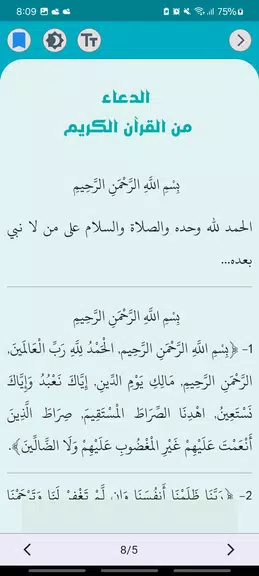 8:09
75%
الدعاء
من القرآن الكريم
بِسْمِ اللَّهِ الرَّحْمَنِ الرَّحِيمِ
الحمد لله وحده والصلاة والسلام على من لا نبي
بعده...
بِسْمِ اللَّهِ الرَّحْمَنِ الرَّحِيمِ
1- ﴿بِسْمِ اللَّهِ الرَّحْمَنِ الرَّحِيمِ, الْحَمْدُ لِلَّهِ رَبِّ الْعَالَمِينَ,
الرَّحْمَنِ الرَّحِيمِ, مَالِكِ يَوْمِ الدِّينِ, إِيَّاكَ نَعْبُدُ وَإِيَّاكَ
نَسْتَعِينُ, اهْدِنَا الصِّرَاطَ الْمُسْتَقِيمَ, صِرَاطَ الَّذِينَ
أَنْعَمْتَ عَلَيْهِمْ غَيْرِ الْمَغْضُوبِ عَلَيْهِمْ وَلَا الضَّالِّينَ﴾.
2- ﴿رَبَّنَا ظَلَمْنَا أَنْفُسَنَا وَإِنْ لَمْ تَغْفِرْ لَنَا وَتَرْحَمْنَا
8/5